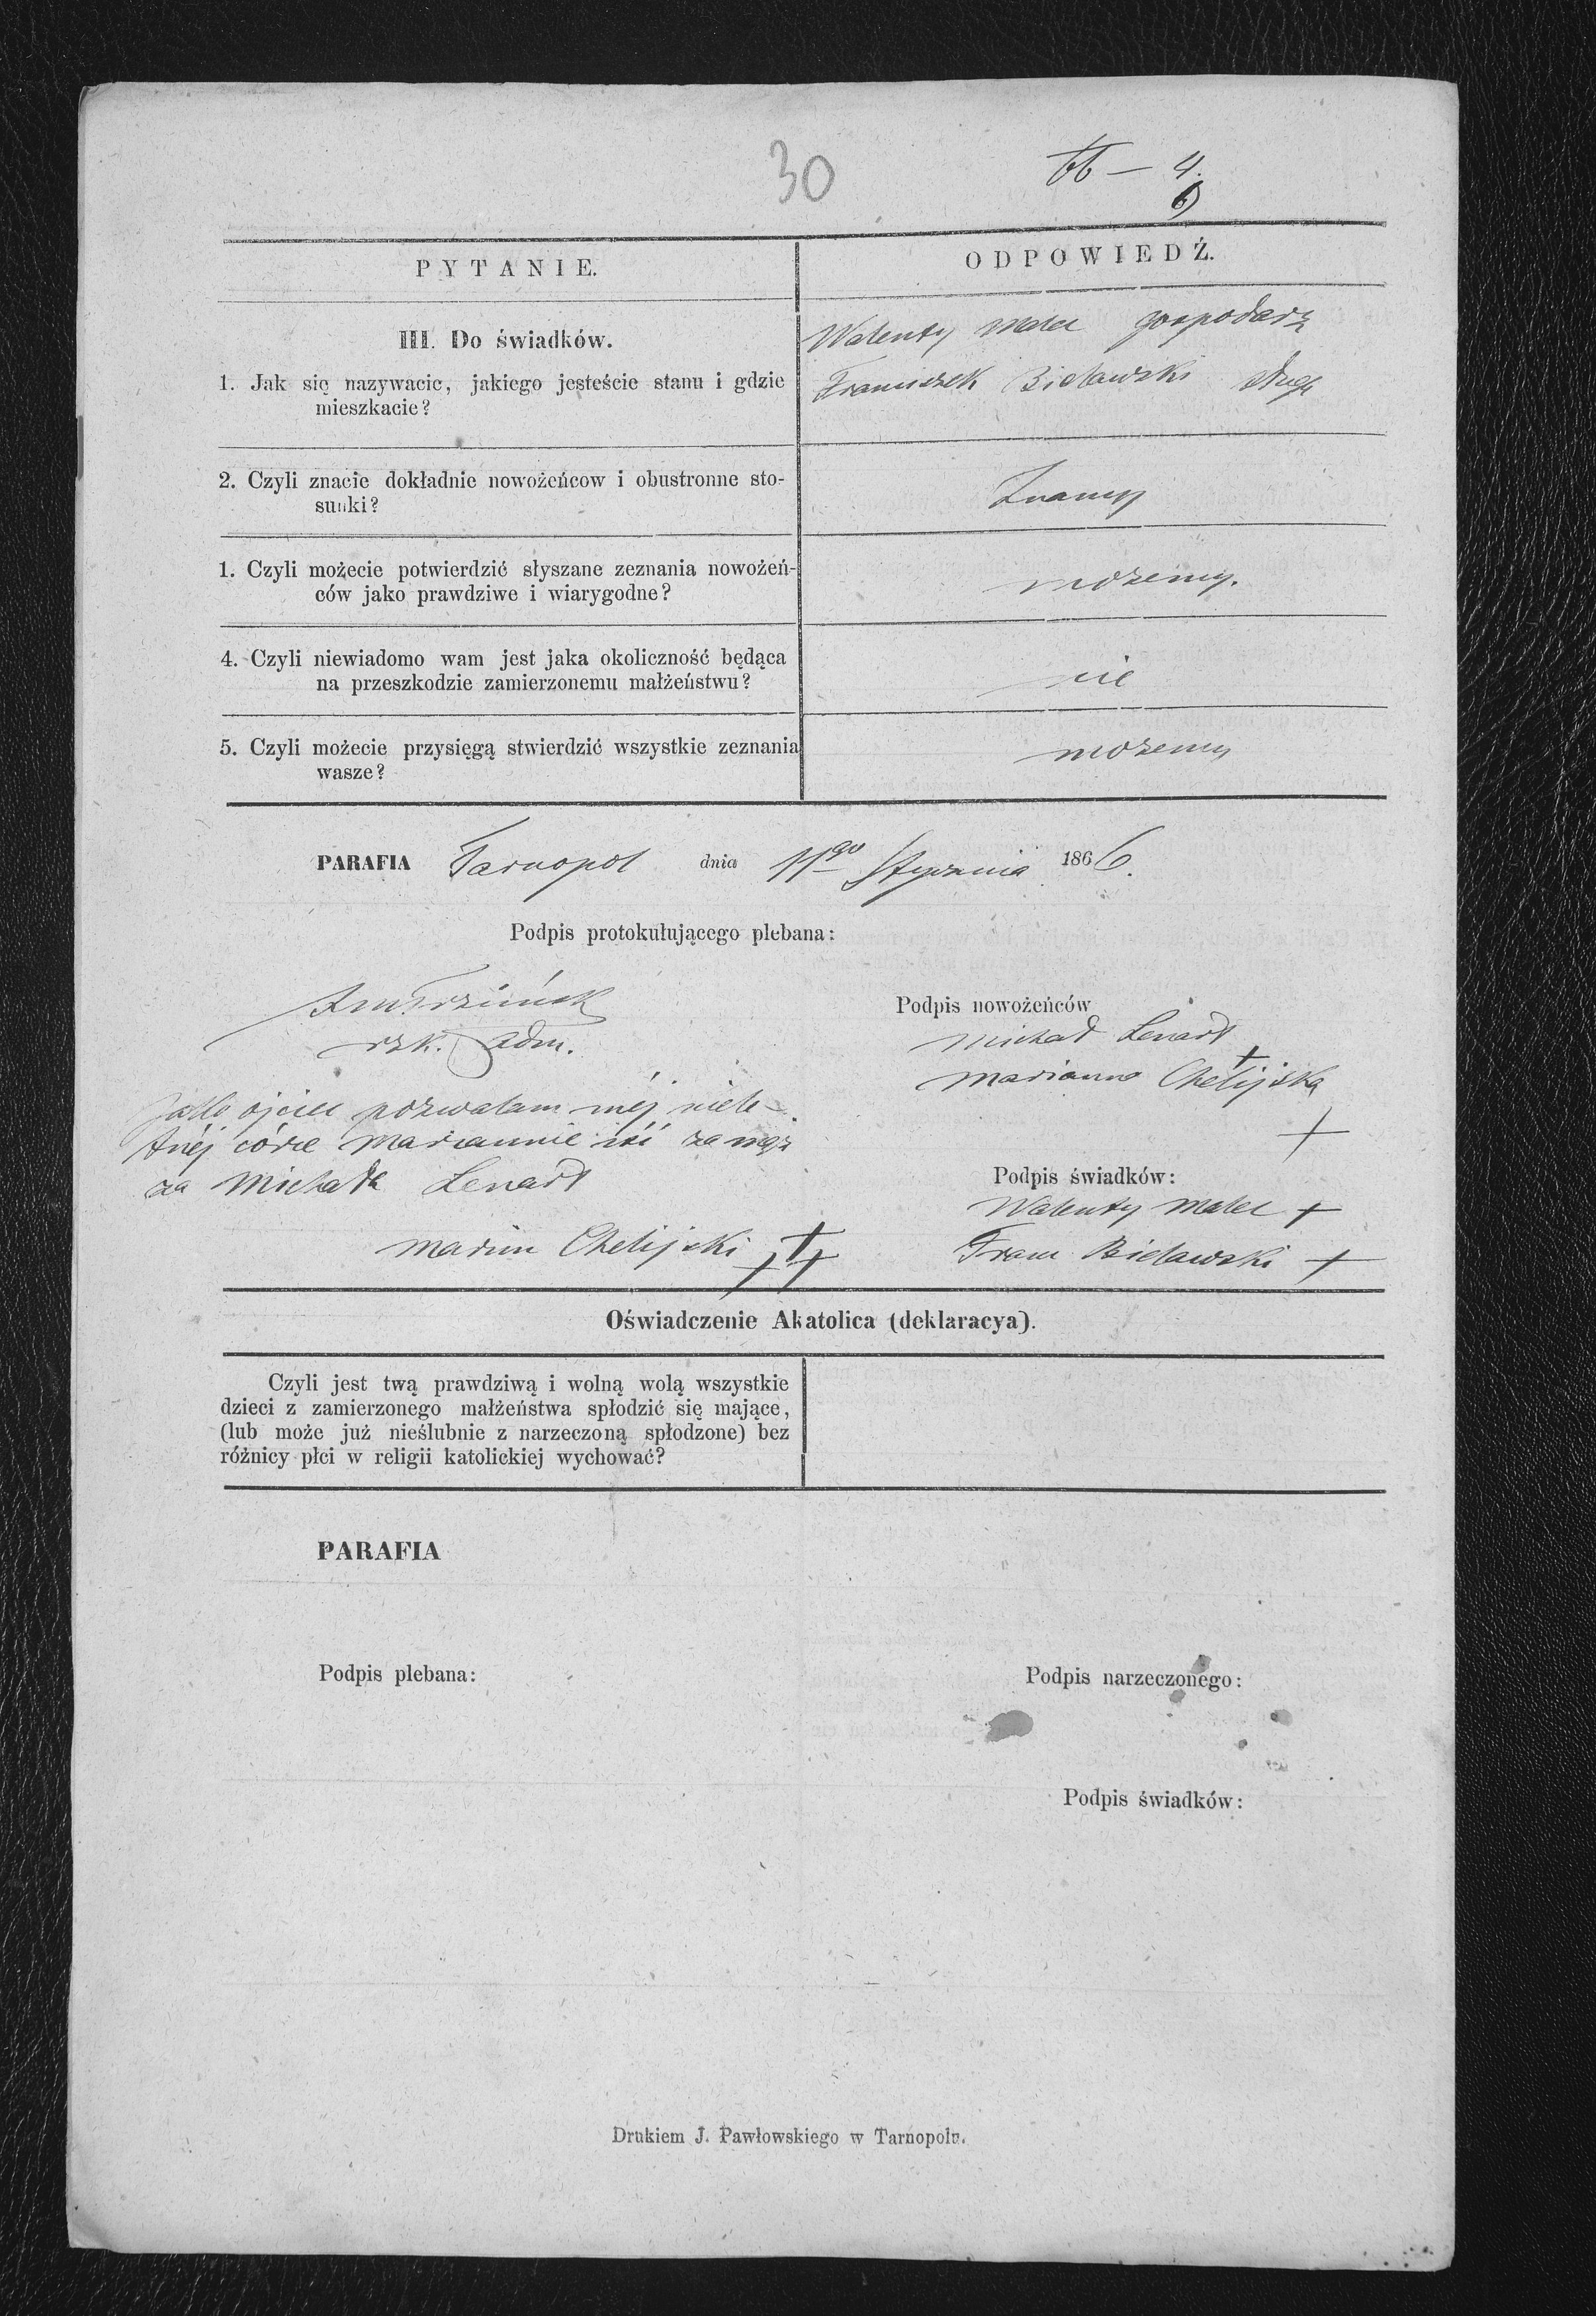 30
66 — 4.
6)
PYTANIE.
ODPOWIEDŹ.
III. Do świadków.
1. Jak się nazywacie, jakiego jesteście stanu i gdzie
mieszkacie?
Walenty Malec gospodarz
Franciszek Bielawski sługa
2. Czyli znacie dokładnie nowożeńcow i obustronne sto-
sunki?
Znamy
1. Czyli możecie potwierdzić słyszane zeznania nowożeń-
ców jako prawdziwe i wiarygodne?
możemy.
4. Czyli niewiadomo wam jest jaka okoliczność będąca
na przeszkodzie zamierzonemu małżeństwu?
nie
5. Czyli możecie przysięgą stwierdzić wszystkie zeznania
wasze?
możemy
PARAFIA Tarnopol dnia 11go Stycznia 1866.
Podpis protokułującego plebana:
rzk. Adm.
Podpis nowożeńców
Michał Lenart +
Marianna Chelijska
+
Jako ojciec pozwalam mej niele-
tnéj córce Mariannie iść za mąż
za Michała Lenart
Marcin Chelijski +++
Podpis świadków:
Walenty Malec +
Fran Bielawski +
Oświadczenie Akatolica (deklaracya).
Czyli jest twą prawdziwą i wolną wolą wszystkie
dzieci z zamierzonego małżeństwa spłodzić się mające,
(lub może już nieślubnie z narzeczoną spłodzone) bez
różnicy płci w religii katolickiej wychować?
PARAFIA
Podpis plebana:
Podpis narzeczonego:
Podpis świadków:
Drukiem J. Pawłowskiego w Tarnopolu.